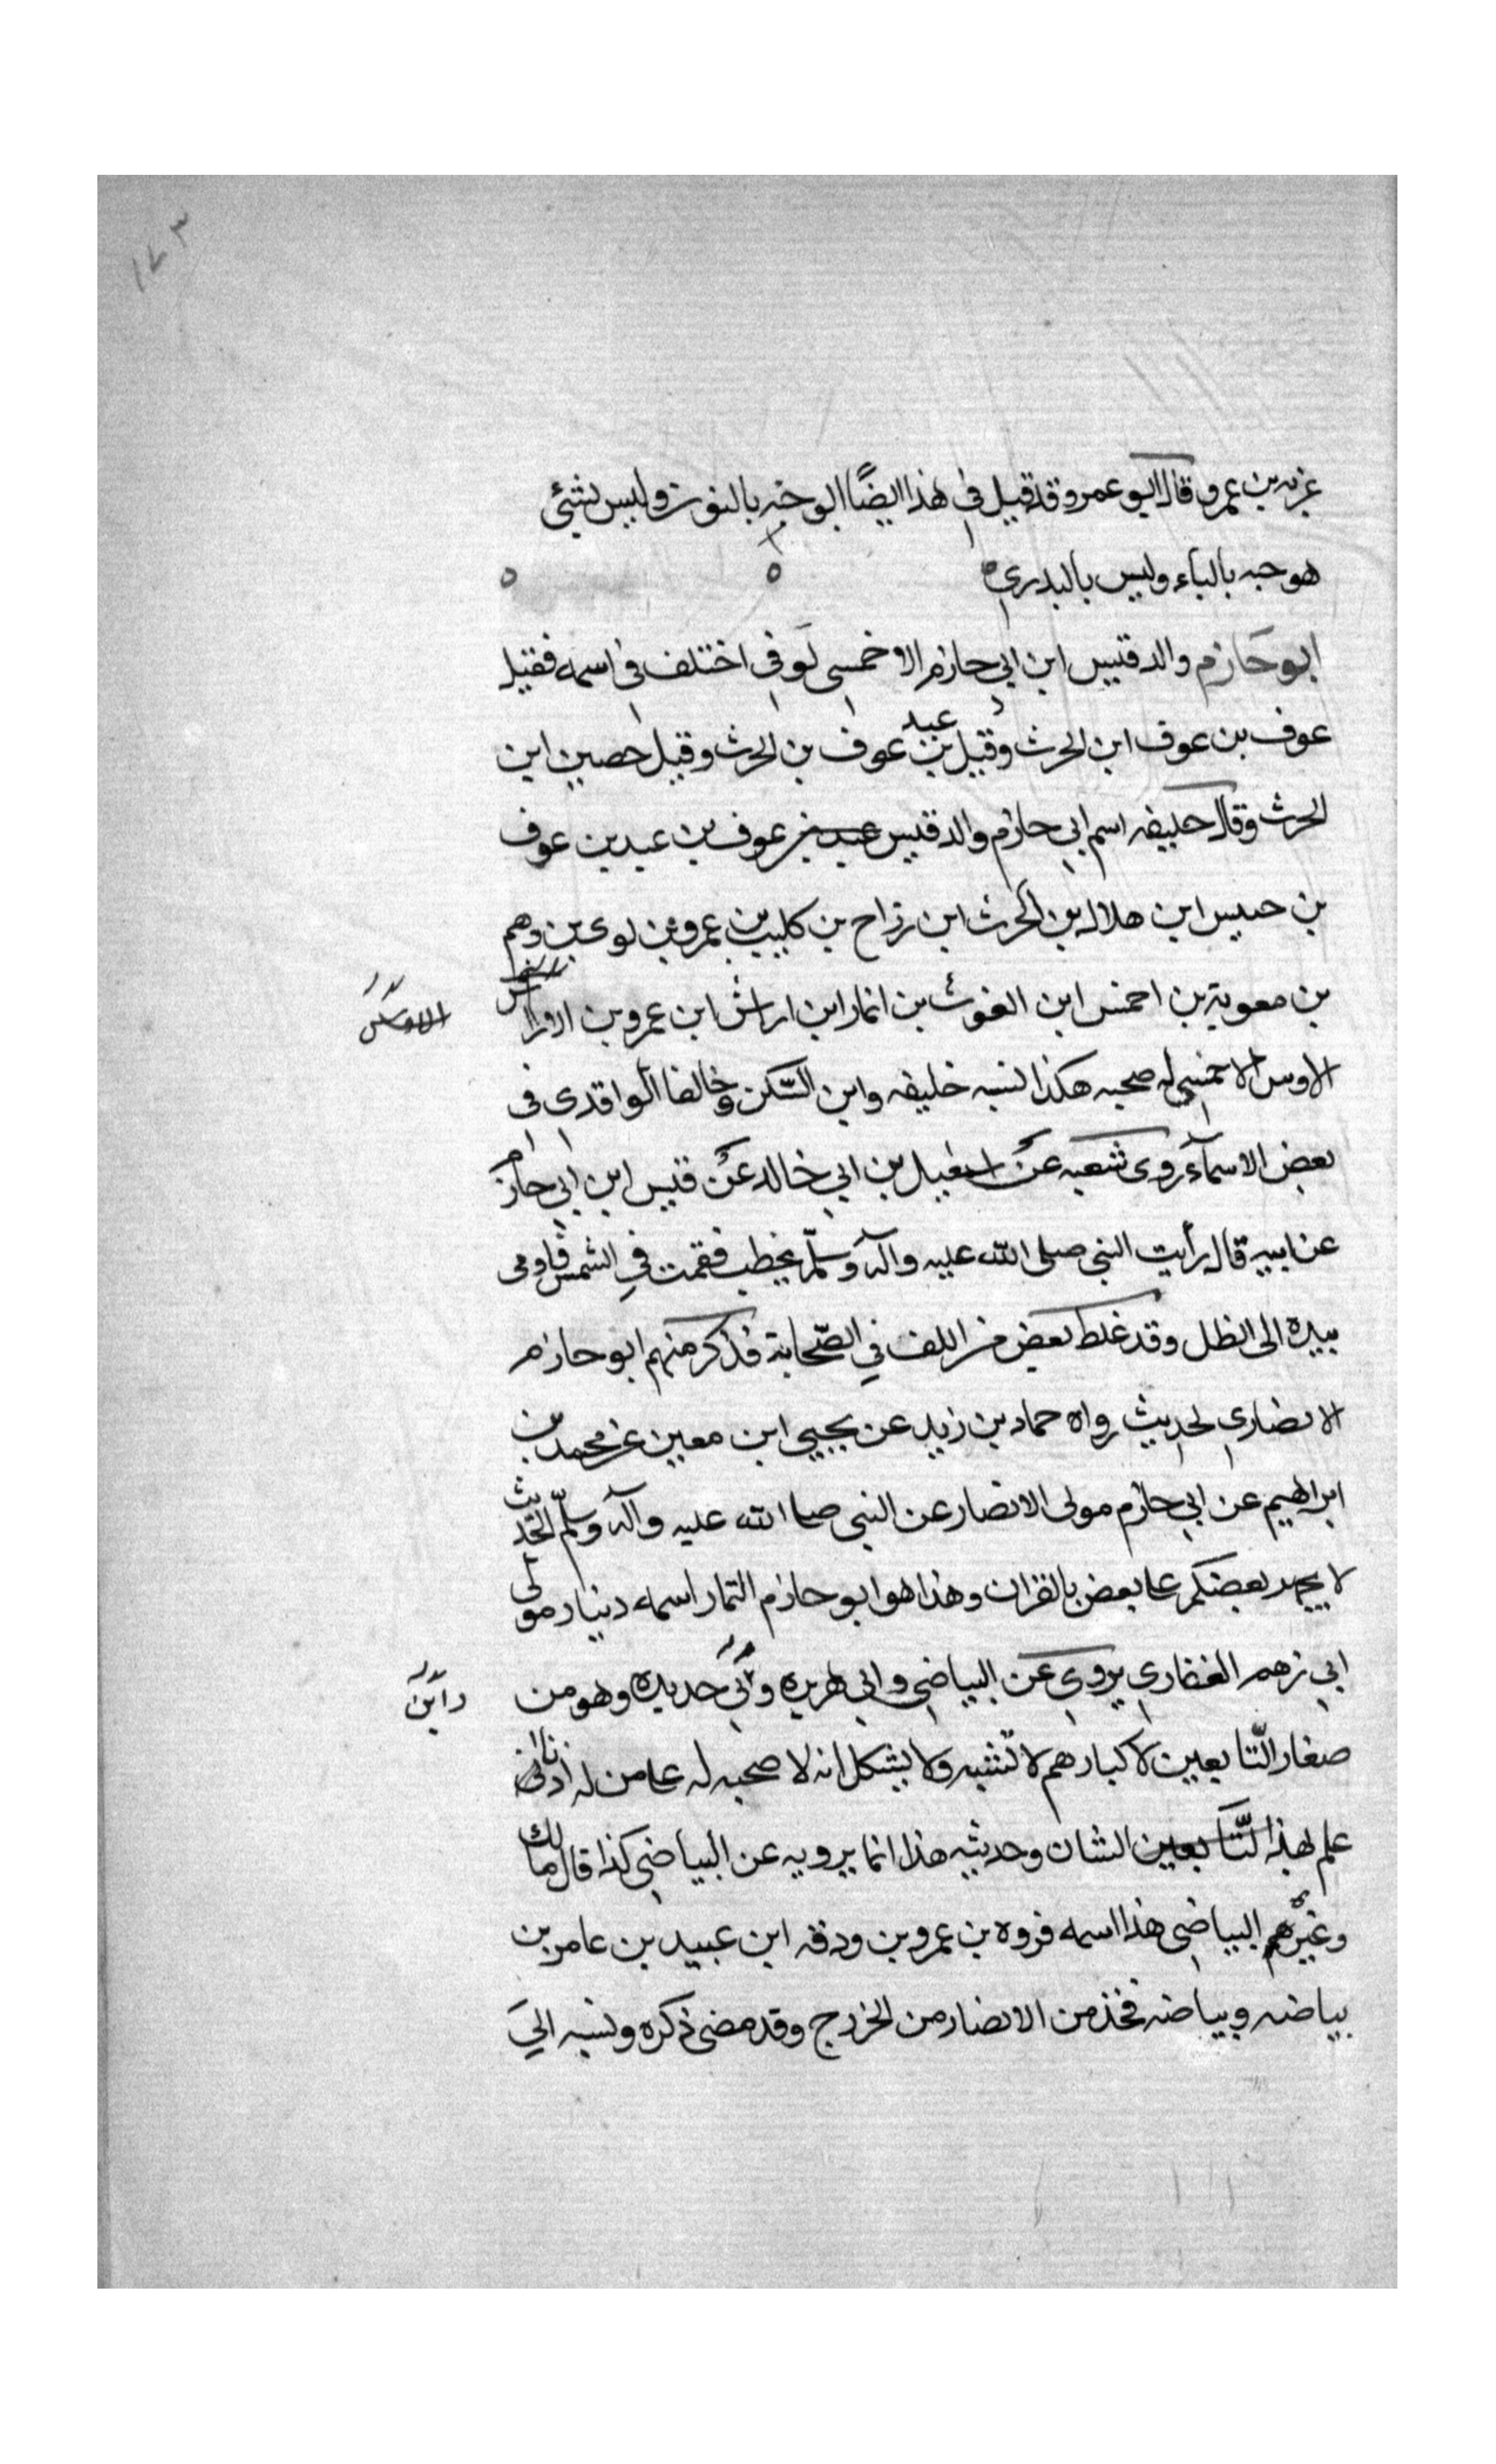 ١٧٣
غزيه بن عمرو قال ابو عمرو قد قيل في هذا ايضًا ابو حنه بالنون وليس بشئ
هو حبه بالباء وليس بالبدري
ابو حازم والد قيس ابن ابي حازم الاحمسي كوفي اختلف في اسمه فقيل
عوف بن عوف ابن الحرث وقيل عبد بن عوف بن الحرث وقيل حصين ابن
الحرث وقال خليفه اسم ابي حازم والد قيس عوف بن عبد بن عوف
بن حبيس ابن هلال بن الحرث ابن رزاح بن كليب بن عمرو بن لوى بن رهم
بن معوية بن احمس ابن الغوث بن انمار ابن اراش ابن عمرو بن
الاوس الاحمسي له صحبه هكذا نسبه خليفه وابن السّكن وخالفا الواقدى فى
بعض الاسمآء روى شعبه عن اسمعيل بن ابي خالد عن قيس ابن ابي حازم
عن ابيه قال رأيت النبي صلى الله عليه وآله وسلّم يخطب فقمت في الشمس فاومى
بيده الى الظل وقد غلط بعض من الف في الصّحابة فذكر منهم ابو حازم
الانصاري لحديث رواه حماد بن زيد عن يحيي ابن معين عن محمد بن
ابراهيم عن ابي حازم مولى الانصار عن النبي صلى الله عليه وآله وسلّم الحديث
لا يجهر بعضكم على بعض بالقران وهذا هو ابو حازم التمار اسمه دينار مولى
ابي رهم الغفاري يروي عن البياضي وابي هريره وابي حديده وهو من
وابن
صغار التّابعين لا كبارهم لا تشبه ولا يشكل انه لا صحبه له على من له ادنى
علم بهذا التّابعين الشان وحديثه هذا انما يرويه عن البياضي كذا قال مالك
وغيرهم البياضي هذا اسمه فروه بن عمرو بن ودقه ابن عبيد بن عامر بن
بياضه وبياضه فخذ من الانصار من الخزرج وقد مضى ذكره ونسبه الي